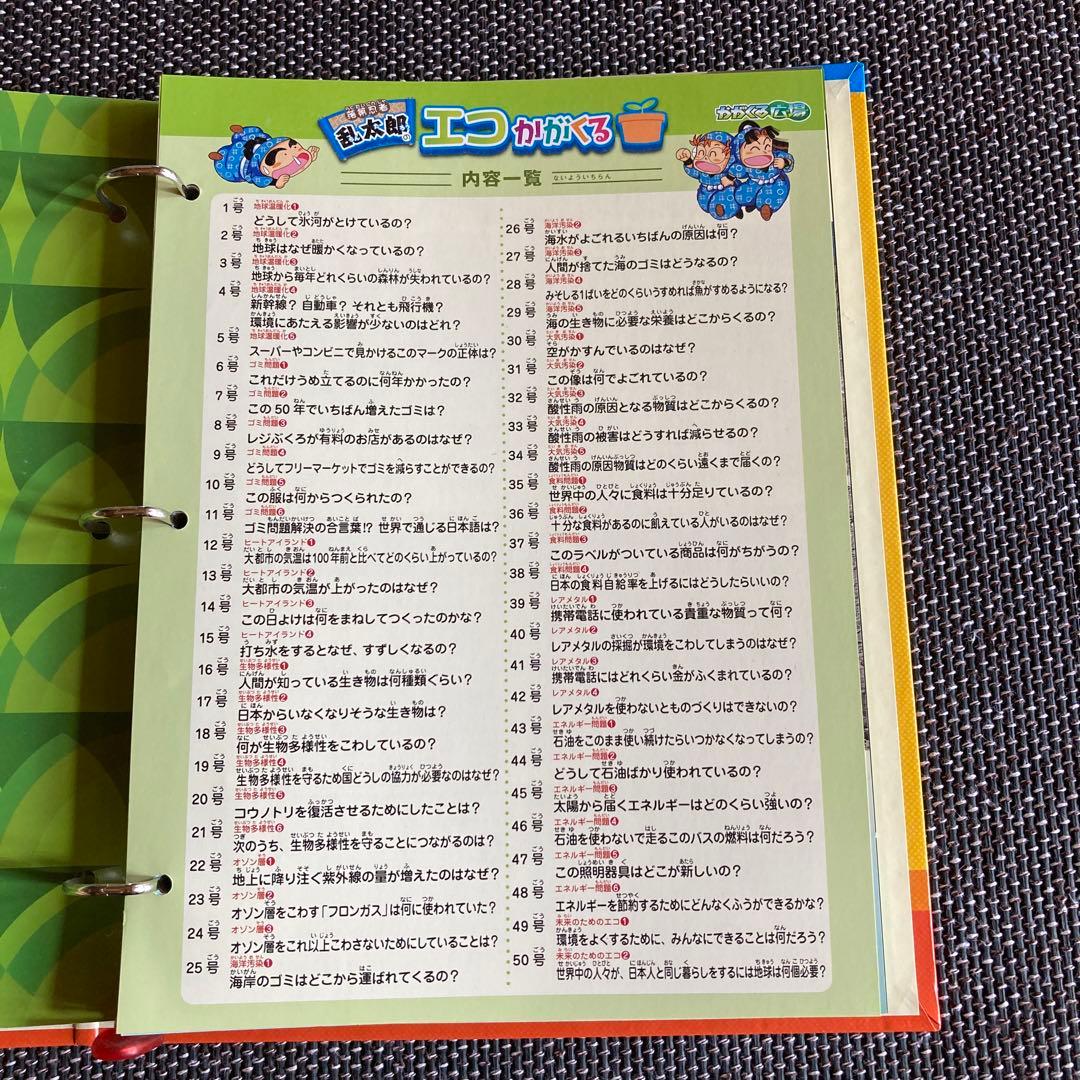 落第忍者
乱太郎の エコかがくる
かがくる広場
内容一覧 ないよういちらん
1号 地球温暖化❶
どうして氷河がとけているの？
2号 地球温暖化❷
地球はなぜ暖かくなっているの？
3号 地球温暖化❸
地球から毎年どれくらいの森林が失われているの？
4号 地球温暖化❹
新幹線？ 自動車？ それとも飛行機？
環境にあたえる影響が少ないのはどれ？
5号 地球温暖化❺
スーパーやコンビニで見かけるこのマークの正体は？
6号 ゴミ問題❶
これだけうめ立てるのに何年かかったの？
7号 ゴミ問題❷
この50年でいちばん増えたゴミは？
8号 ゴミ問題❸
レジぶくろが有料のお店があるのはなぜ？
9号 ゴミ問題❹
どうしてフリーマーケットでゴミを減らすことができるの？
10号 ゴミ問題❺
この服は何からつくられたの？
11号 ゴミ問題❻
ゴミ問題解決の合言葉!? 世界で通じる日本語は？
12号 ヒートアイランド❶
大都市の気温は100年前と比べてどのくらい上がっているの？
13号 ヒートアイランド❷
大都市の気温が上がったのはなぜ？
14号 ヒートアイランド❸
この日よけは何をまねしてつくったのかな？
15号 ヒートアイランド❹
打ち水をするとなぜ、すずしくなるの？
16号 生物多様性❶
人間が知っている生き物は何種類ぐらい？
17号 生物多様性❷
日本からいなくなりそうな生き物は？
18号 生物多様性❸
何が生物多様性をこわしているの？
19号 生物多様性❹
生物多様性を守るため国どうしの協力が必要なのはなぜ？
20号 生物多様性❺
コウノトリを復活させるためにしたことは？
21号 生物多様性❻
次のうち、生物多様性を守ることにつながるのは？
22号 オゾン層❶
地上に降り注ぐ紫外線の量が増えたのはなぜ？
23号 オゾン層❷
オゾン層をこわす「フロンガス」は何に使われていた？
24号 オゾン層❸
オゾン層をこれ以上こわさないためにしていることは？
25号 海洋汚染❶
海岸のゴミはどこから運ばれてくるの？
26号 海洋汚染❷
海水がよごれるいちばんの原因は何？
27号 海洋汚染❸
人間が捨てた海のゴミはどうなるの？
28号 海洋汚染❹
みそしる1ぱいをどのくらいうすめれば魚がすめるようになる？
29号 海洋汚染❺
海の生き物に必要な栄養はどこからくるの？
30号 大気汚染❶
空がかすんでいるのはなぜ？
31号 大気汚染❷
この像は何でよごれているの？
32号 大気汚染❸
酸性雨の原因となる物質はどこからくるの？
33号 大気汚染❹
酸性雨の被害はどうすれば減らせるの？
34号 大気汚染❺
酸性雨の原因物質はどのくらい遠くまで届くの？
35号 食料問題❶
世界中の人々に食料は十分足りているの？
36号 食料問題❷
十分な食料があるのに飢えている人がいるのはなぜ？
37号 食料問題❸
このラベルがついている商品は何がちがうの？
38号 食料問題❹
日本の食料自給率を上げるにはどうしたらいいの？
39号 レアメタル❶
携帯電話に使われている貴重な物質って何？
40号 レアメタル❷
レアメタルの採掘が環境をこわしてしまうのはなぜ？
41号 レアメタル❸
携帯電話にはどれくらい金がふくまれているの？
42号 レアメタル❹
レアメタルを使わないとものづくりはできないの？
43号 エネルギー問題❶
石油をこのまま使い続けたらいつかなくなってしまうの？
44号 エネルギー問題❷
どうして石油ばかり使われているの？
45号 エネルギー問題❸
太陽から届くエネルギーはどのくらい強いの？
46号 エネルギー問題❹
石油を使わないで走るこのバスの燃料は何だろう？
47号 エネルギー問題❺
この照明器具はどこが新しいの？
48号 エネルギー問題❻
エネルギーを節約するためにどんなくふうができるかな？
49号 未来のためのエコ❶
環境をよくするために、みんなにできることは何だろう？
50号 未来のためのエコ❷
世界中の人々が、日本人と同じ暮らしをするには地球は何個必要？